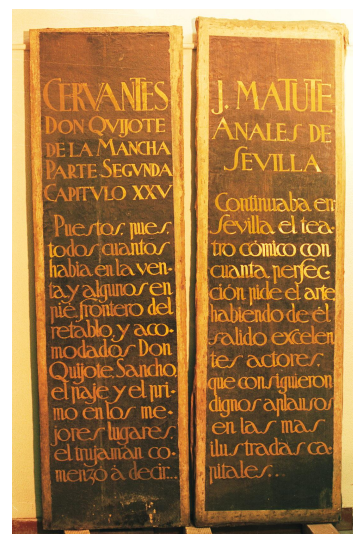 CERVANTES
DON QVIJOTE
DE LA MANCHA
PARTE SEGVNDA
CAPITVLO XXV
Puestos, pues,
todos cuantos
habia en la ven-
ta, y algunos en
pie, frontero del
retablo, y aco-
modados Don
Quijote Sancho,
el paje y el pri-
mo en los me-
jores lugares,
el trujamán co-
menzó à decir...
J. MATUTE
ANALES DE
SEVILLA
Continuaba en
Sevilla el tea-
tro cómico con
cuanta perfec-
ción pide el arte
habiendo de él
salido excelen-
tes actores,
que consiguieron
dignos aplausos
en las mas
ilustradas ca-
pitales...